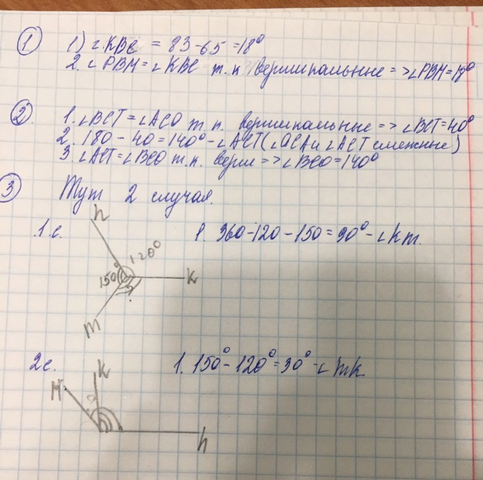 1 1) ∠KBC = 83-65 =18°
2. ∠PBM=∠KBC т.к вертикальные =>∠PBM=18°
2 1. ∠BCT=∠ACO т.к. вертикальные => ∠BCT=40°
2. 180-40=140°-∠ACT(∠OCA и ∠ACT смежные)
3. ∠ACT=∠BCO т.к. верти =>∠BCO=140°
3 Тут 2 случая.
1 с. n 1. 360-120-150=90°-∠km.
120°
150° k
m
2 с. M k 1. 150°-120°=30°-∠mk
h